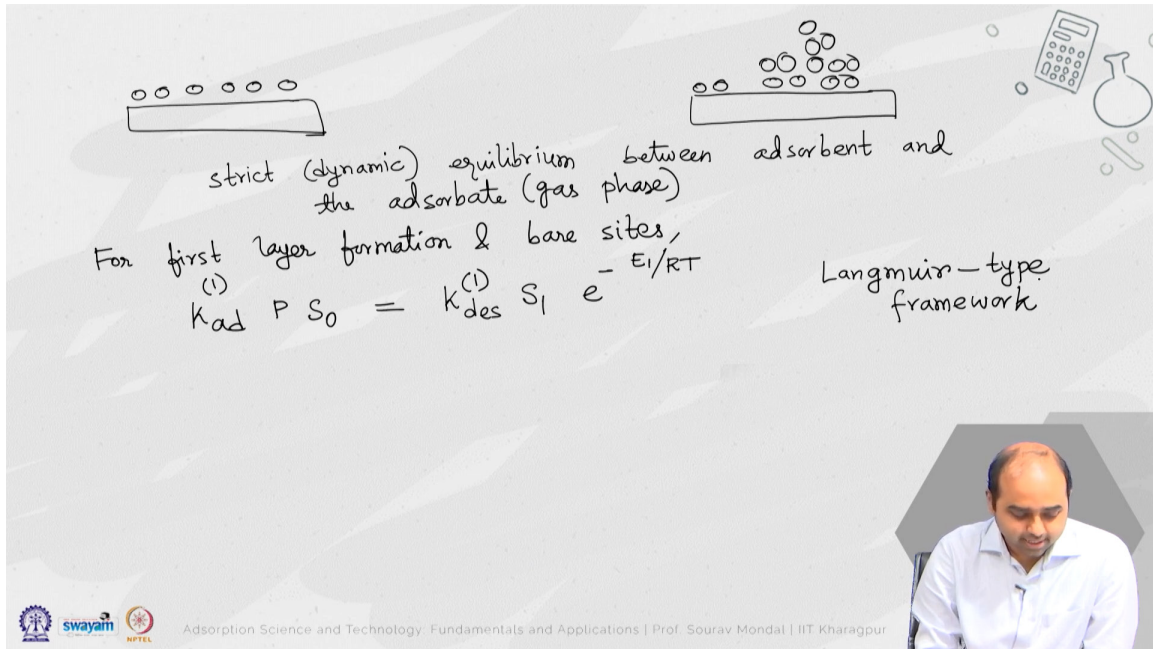 strict (dynamic) equilibrium between adsorbent and
the adsorbate (gas phase)
For first layer formation & bare sites,
k_ad^(1) P S_0 = k_des^(1) S_1 e^(-E_1/RT)
Langmuir-type
framework
swayam
NPTEL
Adsorption Science and Technology: Fundamentals and Applications | Prof. Sourav Mondal | IIT Kharagpur